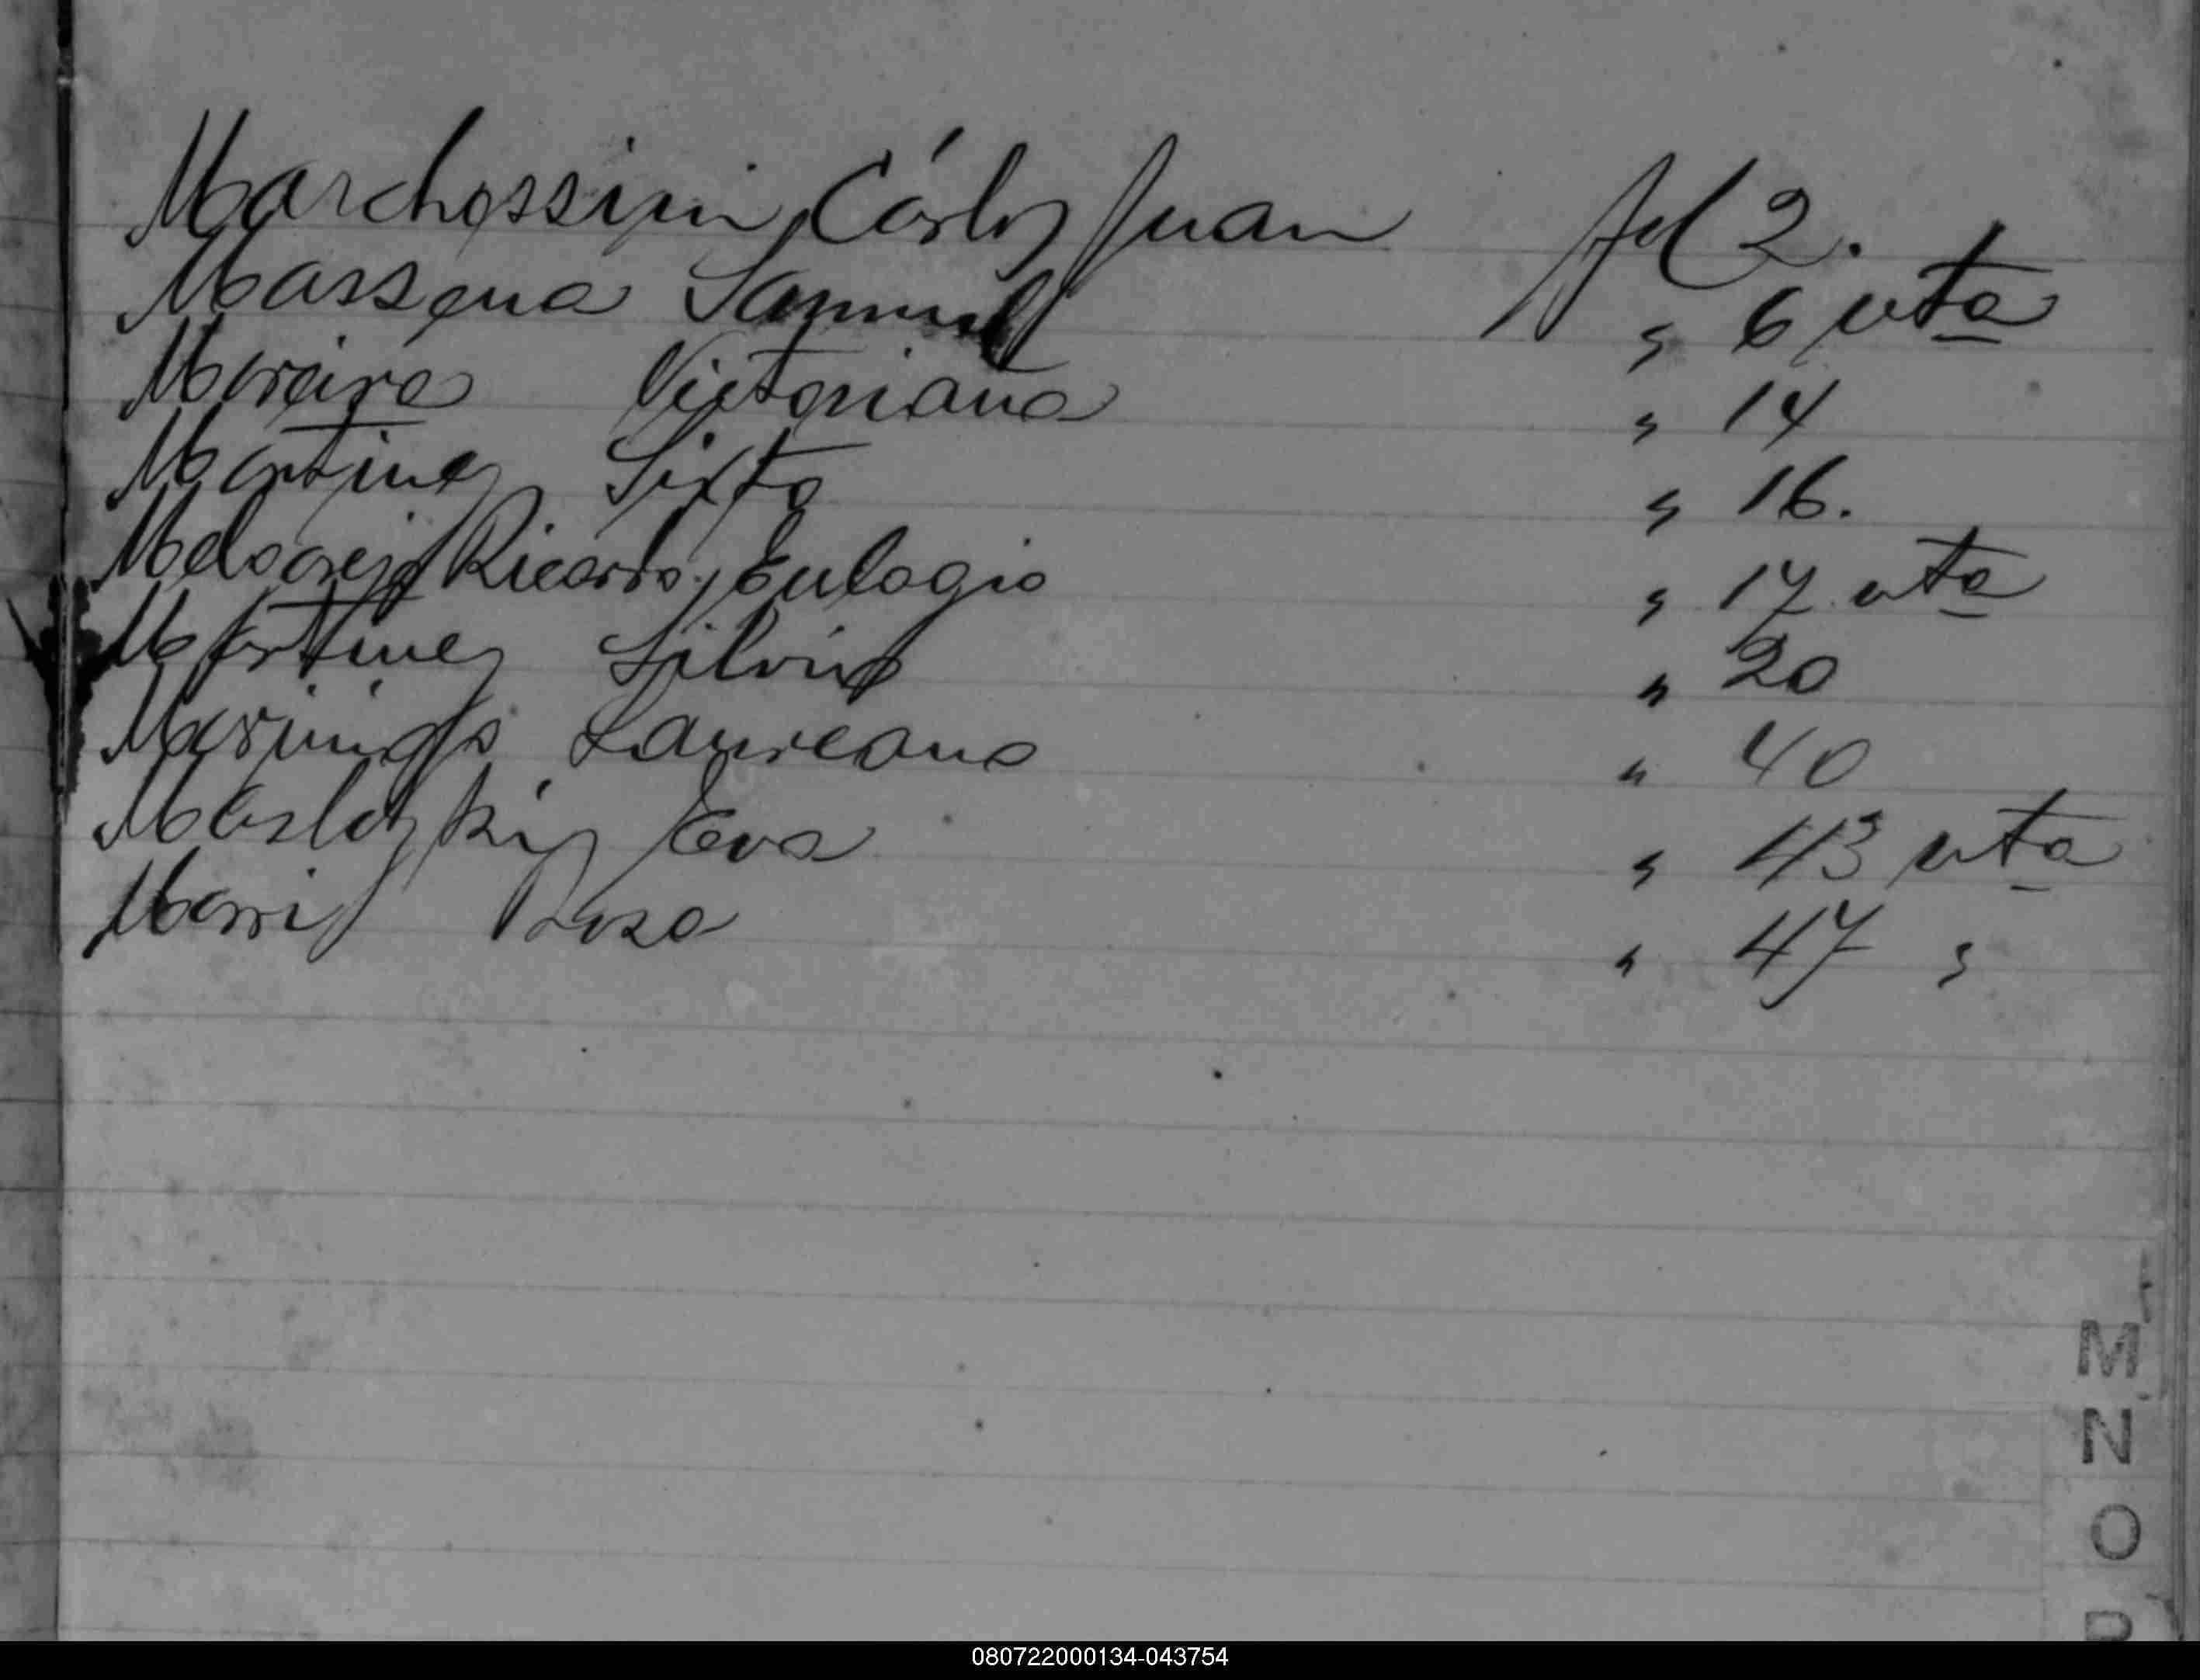 Marchessini, Cárlos Juan fol 2.
Massena Samuel " 6 vta
Moreira Victoriana " 14
Martinez Sixto " 16.
Melgarejo Ricardo, Eulogio " 17 vta
Martinez Silvio " 20
Laureano " 40
Eva " 43 vta
Rosa " 47 "
M
N
O
P
080722000134-043754